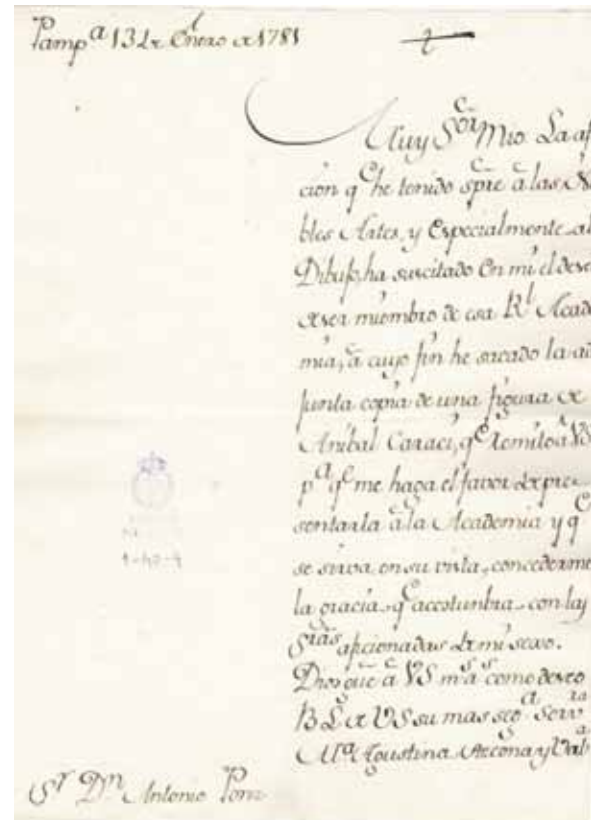 Pamp.ª 13 de Enero de 1781
Muy S.or Mio. La afi
cion q.e he tenido spre â las No
bles Artes, y Especialmente al
Dibujo, ha suscitado en mi el deseo
de ser miembro de esa R.l Acade
mia, â cuyo fin he sacado la ad
junta copia de una figura de
Anibal Caraci, q.e remito â VS
p.ª q.e me haga el favor de pre
sentarla â la Academia y q.e
se sirva, en su vista, concederme
la gracia, q.e accostunbra con las
Sras aficionadas de mi sexo.
Dios gue â VS m.s a.s como deseo
B L de VS su mas seg.ª Serv.ra
M.ª Agustina Azcona y Val
S.r D.n Antonio Ponz